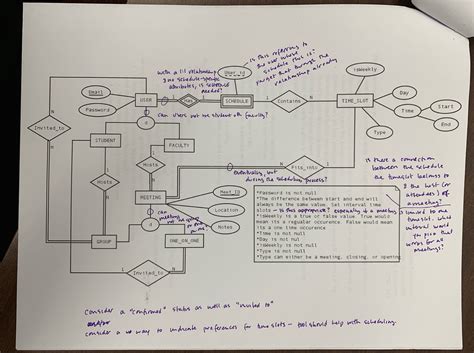 with a 1:1 relationship
& no schedule-specific
attributes, is schedule
needed?
User_id
- is this referring to
the user whose
schedule this is?
through the
relationship already
isWeekly
Email
Password
USER
Has
SCHEDULE
Contains
TIME_SLOT
Day
Time
Start
End
Type
can users not be student or faculty?
d
Invited_to
STUDENT
FACULTY
Hosts
Hosts
Fits_into
Eventually, but
during the scheduling process?
is there a connection
between the schedule
the timeslot belongs to
& the host (or
attendees) of
a meeting?
MEETING
Meet_ID
Location
Notes
can
meetings
not be group
or one
on one?
d
GROUP
ONE_ON_ONE
Invited_to
*Password is not null
*The difference between start and end will
always be the same value. Let interval time
slots - is this appropriate? especially if a meeting
*isWeekly is a true or false value. True would
mean is a regular occurence. False would mean
is a one time occurence
*Time is not null
*Day is not nul
*isWeekly is not null
*Type is not null
*Type can either be a meeting, closing, or opening
is limited to one
timeslot. what
interval would
you pick that
works for all
meetings?
consider a "confirmed" status as well as "invited to"
and/or
consider a way to indicate preferences for time slots - that should help with scheduling.